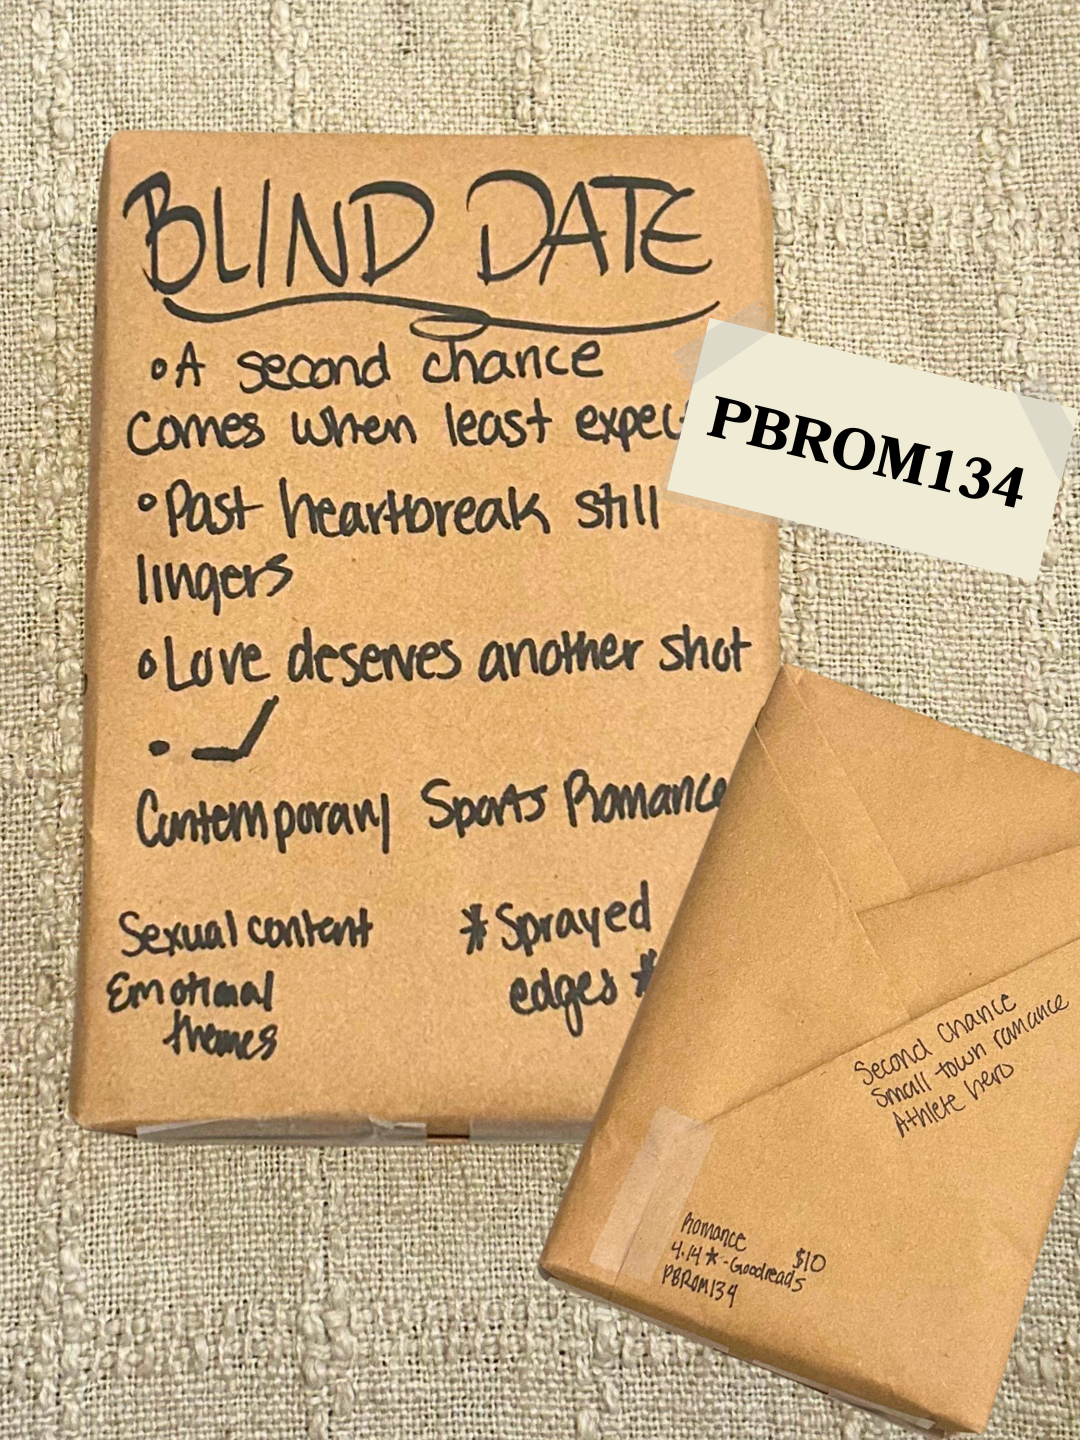 BLIND DATE
• A second chance
comes when least expec
• Past heartbreak still
lingers
• Love deserves another shot
• ✓
Contemporary Sports Romance
Sexual content
Emotional
themes
* Sprayed
edges *
PBROM134
Second chance
Small town romance
Athlete hero
Romance
4.14 * - Goodreads
PBROM134
$10